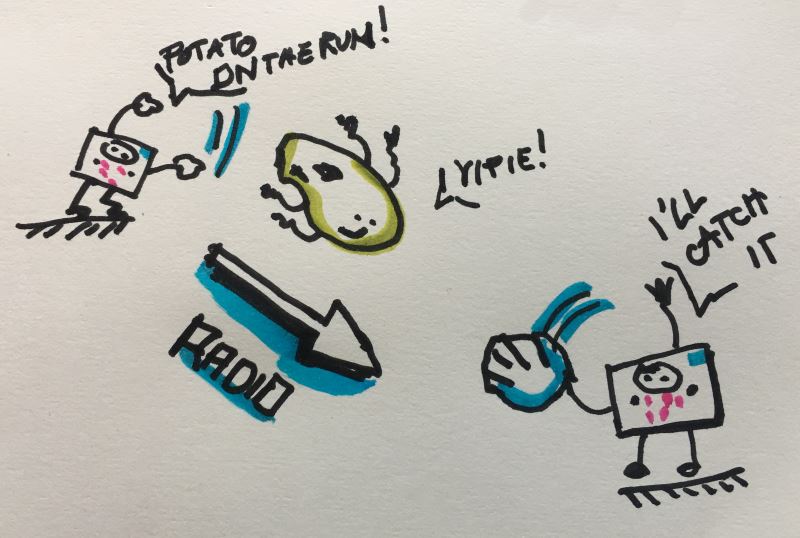 POTATO
ON THE RUN!
YIPIE!
I'LL
CATCH
IT
RADIO